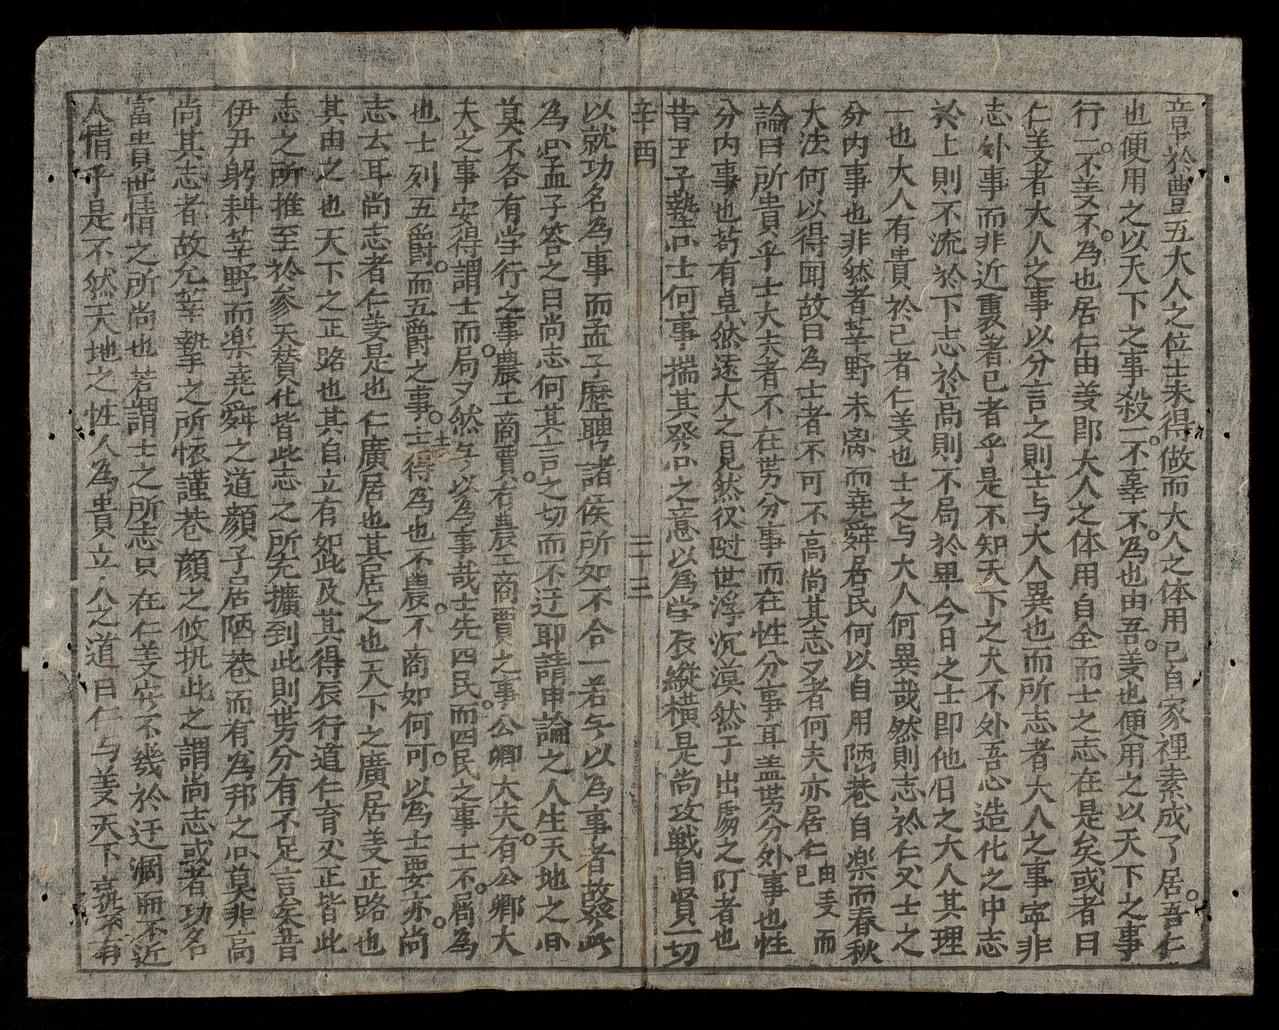 章於豊五大人之位士未得做而大人之体用已自家裡素成了居吾仁
也便用之以天下之事殺一不辜不為也由吾羙也便用之以天下之事
行一不羙不為也居仁由羙即大人之体用自全而士之志在是矣或者曰
仁羙者大人之事以分言之則士与大人異也而所志者大人之事寧非
志外事而非近裏者已者乎是不知天下之大不处吾心造化之中志
於上則不流於下志於高則不局於卑今日之士即他日之大人其理
一也大人有貴於己者仁羙也士之与大人何異哉然則志於仁羙士之
分内事也非然者莘野未离而堯舜居民何以自用陋巷自樂而春秋
大法何以得聞故曰為士者不可不高尚其志又者何夫亦居仁由羙而已
論曰所貴乎士大夫者不在势分事而在性分事耳盖势分外事也性
分内事也苟有卓然遠大之見然後陞世浮沉漠然于出處之際者也
昔王子墊问士何事揣其發问之意以為学辰縱横是尚攻戦自賢一切
辛酉
二十三
以就功名為事而孟子歷聘諸侯所如不合一若無以為事者故發此
為问孟子答之曰尚志何其言之切而不迂耶請申論之人生天地之间
莫不各有学行之事農工商賈有農工商賈之事公卿大夫有公卿大
夫之事安得謂士而局又然無以為事哉士先四民而四民之事士不屑為
也士列五爵而五爵之事士得為也不農不商如何可以為士要亦尚
志云耳尚志者仁羙是也仁廣居也其居之也天下之廣居羙正路也
其由之也天下之正路也其自立有如此及其得辰行道仁育羙正皆此
志之所推至於参天賛化皆此志之所充擴到此則势分有不足言矣昔
伊尹躬耕莘野而樂堯舜之道顔子居陋巷而有為邦之问莫非高
尚其志者故允莘摯之所懷謹巷顔之攸抳此之謂尚志或者功名
富貴世情之所尚也若謂士之所志只在仁羙安不幾於迂濶而不近
人情乎是不然天地之性人為貴立人之道曰仁与羙天下寧有